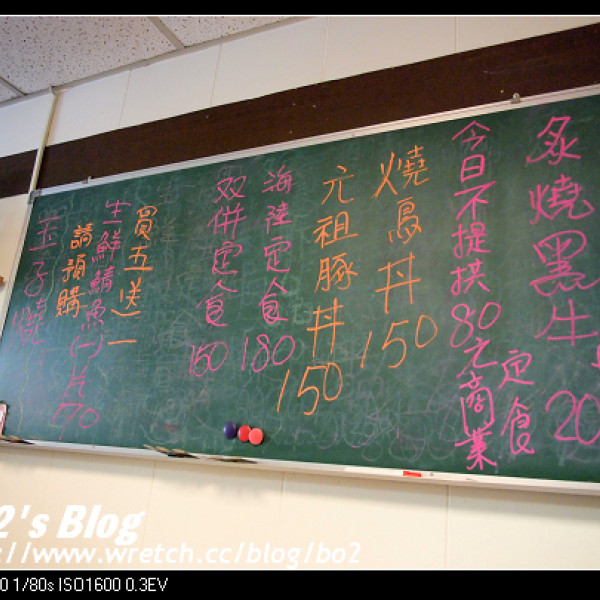 炙燒黑牛
定食 20
今日不提拱80元商業
燒鳥丼 150
元祖豚丼 150
海陸定食 180
双併定食 150
買五送一
請預購
生鮮鯖魚(一)片70
玉子燒
2's Blog
://www.wretch.cc/blog/bo2
0 1/80s ISO1600 0.3EV